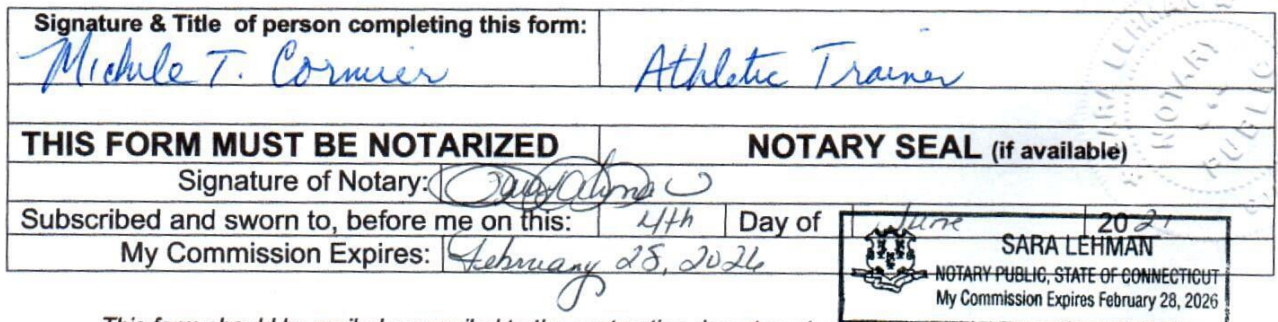 Signature & Title of person completing this form:
Michele T. Cormier Athletic Trainer
THIS FORM MUST BE NOTARIZED NOTARY SEAL (if available)
Signature of Notary: Sara Lehman
Subscribed and sworn to, before me on this: 4th Day of June 2021
My Commission Expires: February 28, 2026
SARA LEHMAN
NOTARY PUBLIC, STATE OF CONNECTICUT
My Commission Expires February 28, 2026
NOTARY
PUBLIC